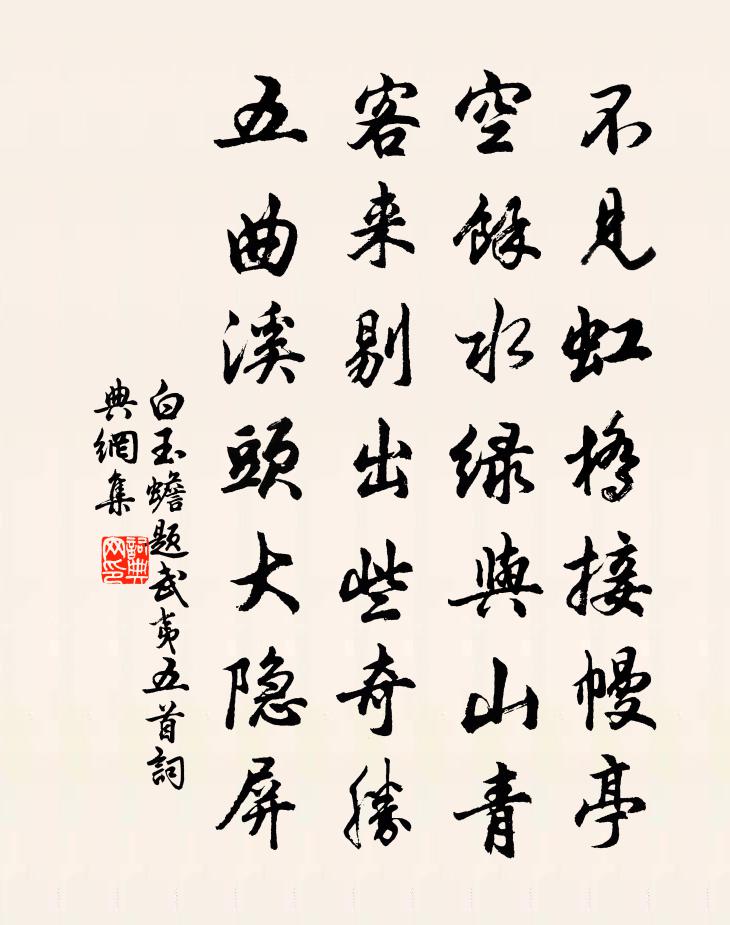 不見虹橋接幔亭
空餘水緑與山青
客来剔出些奇勝
五曲溪頭大隐屏
白玉蟾题武夷五首詞
典網集
詞典網印